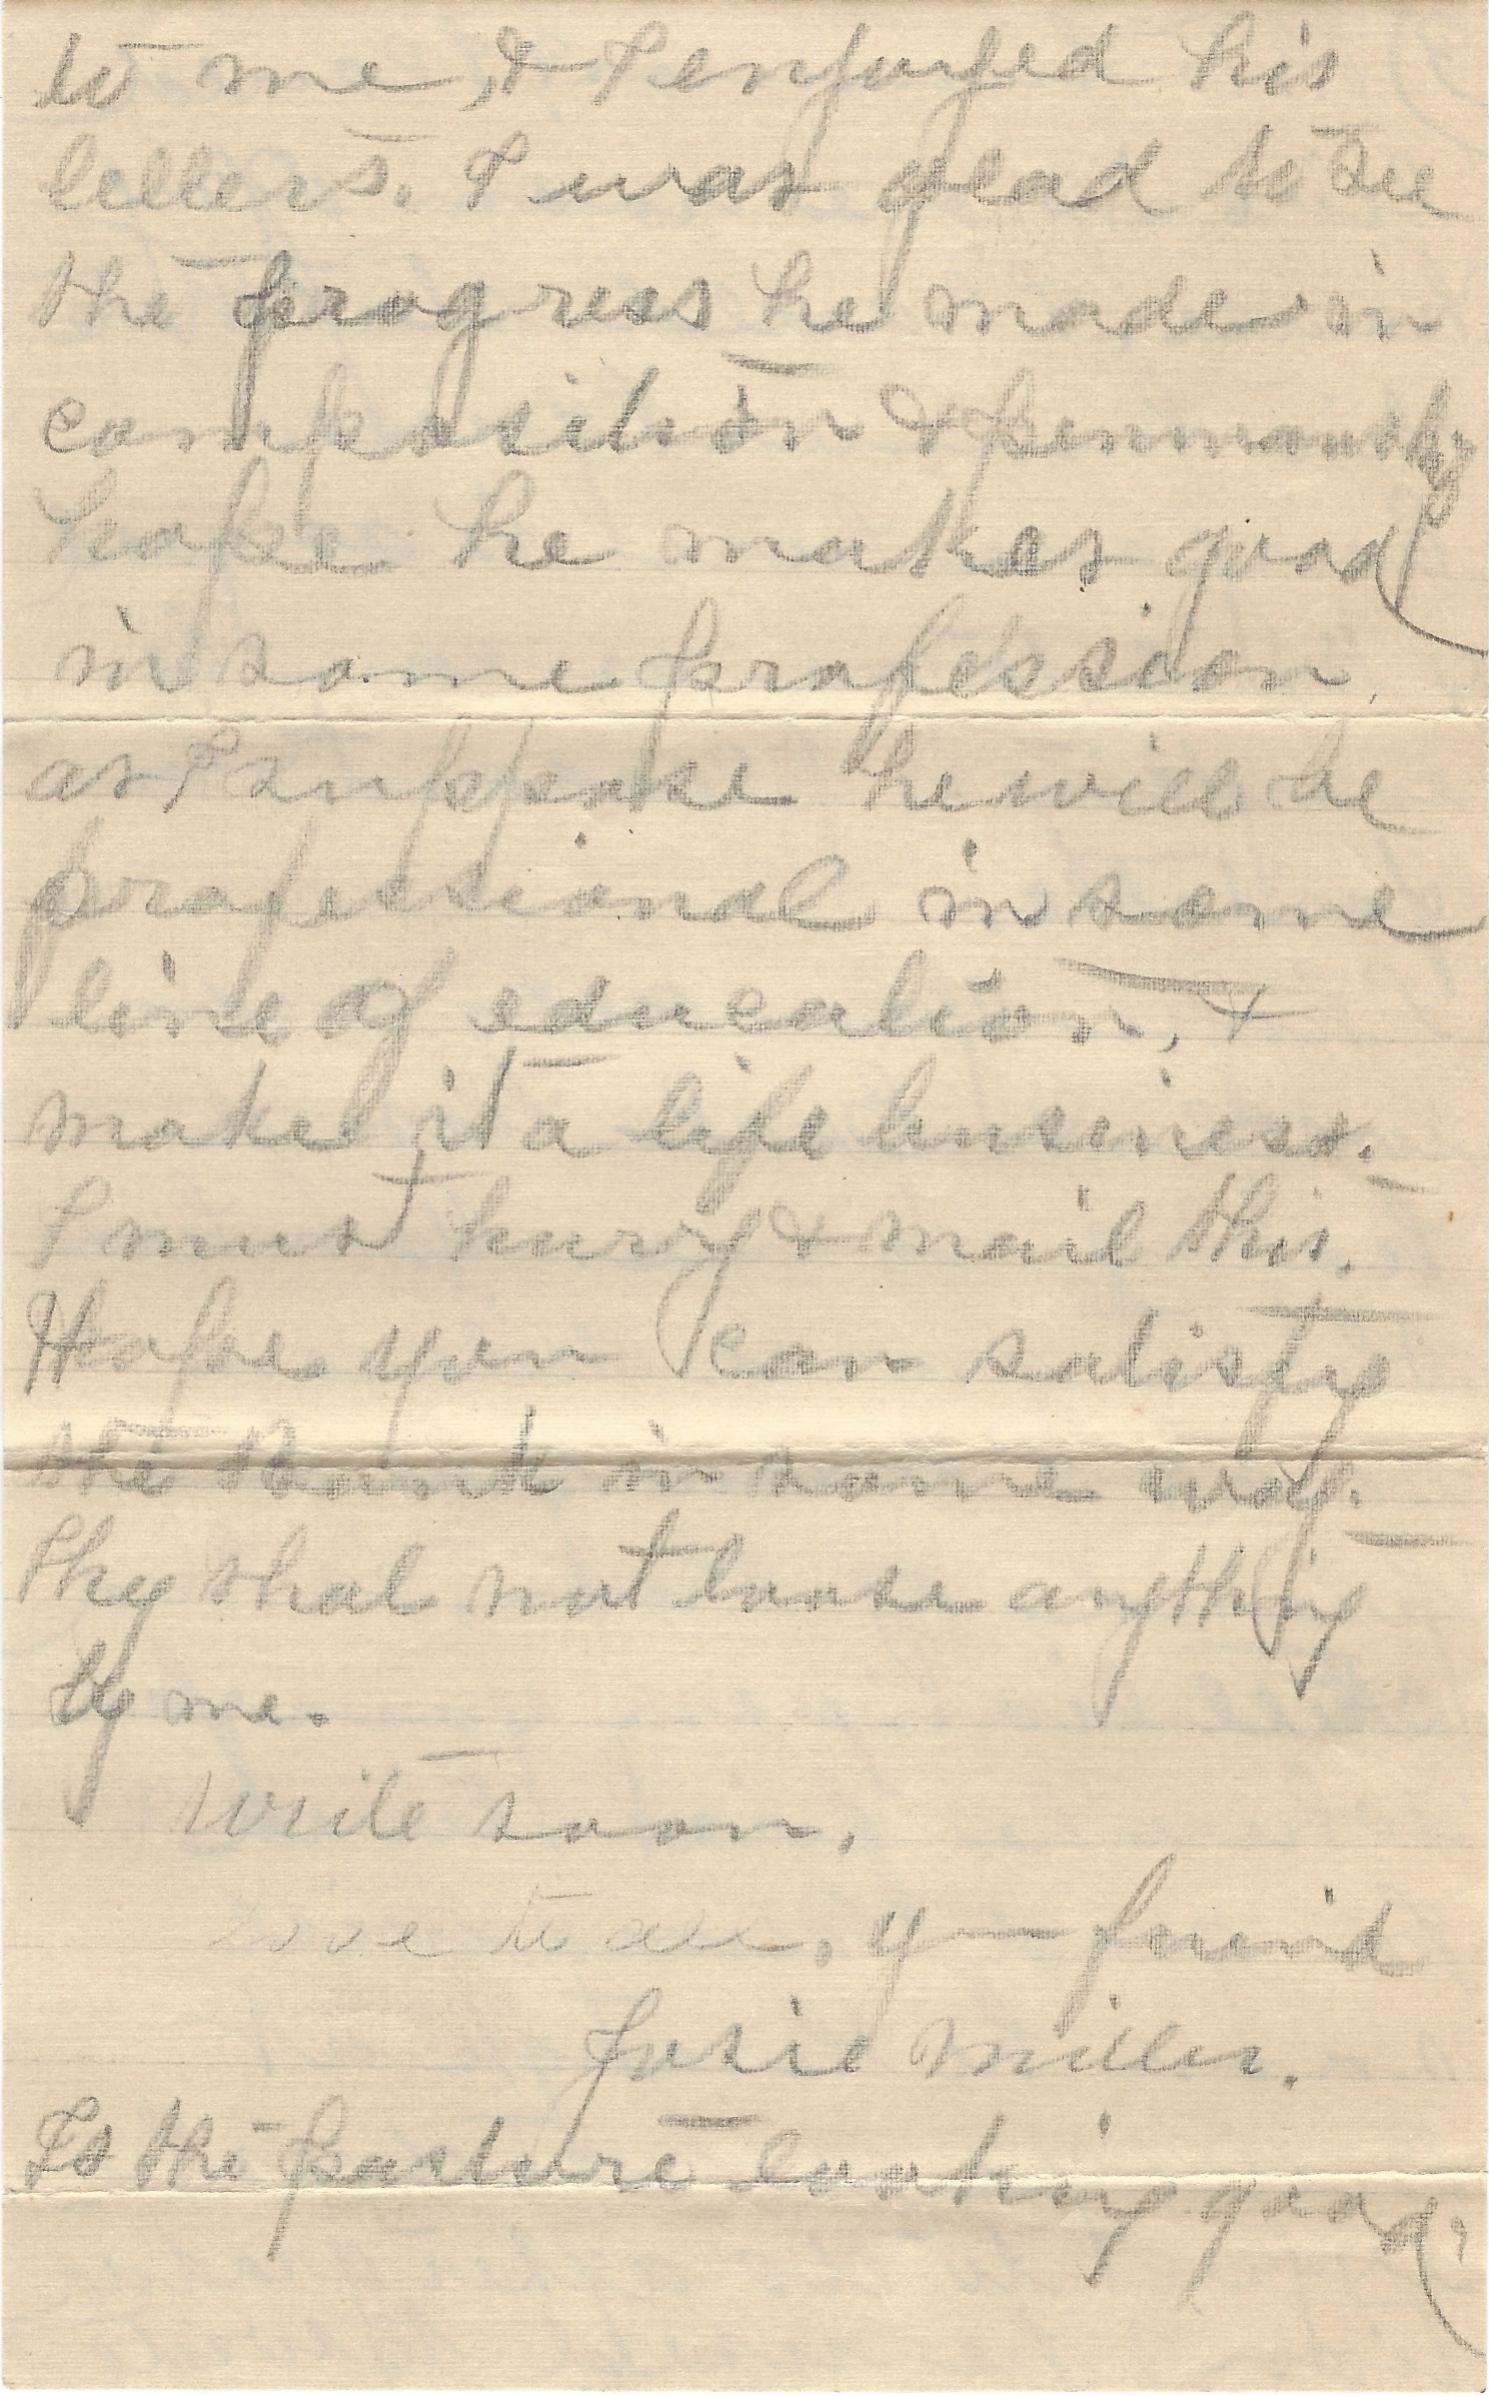 to me, & I enjoyed his
letters. I was glad to see
the progress he made in
composition & penmanship
hope he makes good
in some profession,
as I suppose he will be
professional in some
line of education, &
make it a life business.
I must hurry & mail this.
Hope you can satisfy
the Bank in some way.
They shal not loose anything
by me.
Write soon,
Love to all, y— friend
Josie Miller.
Is the pasture looking good?